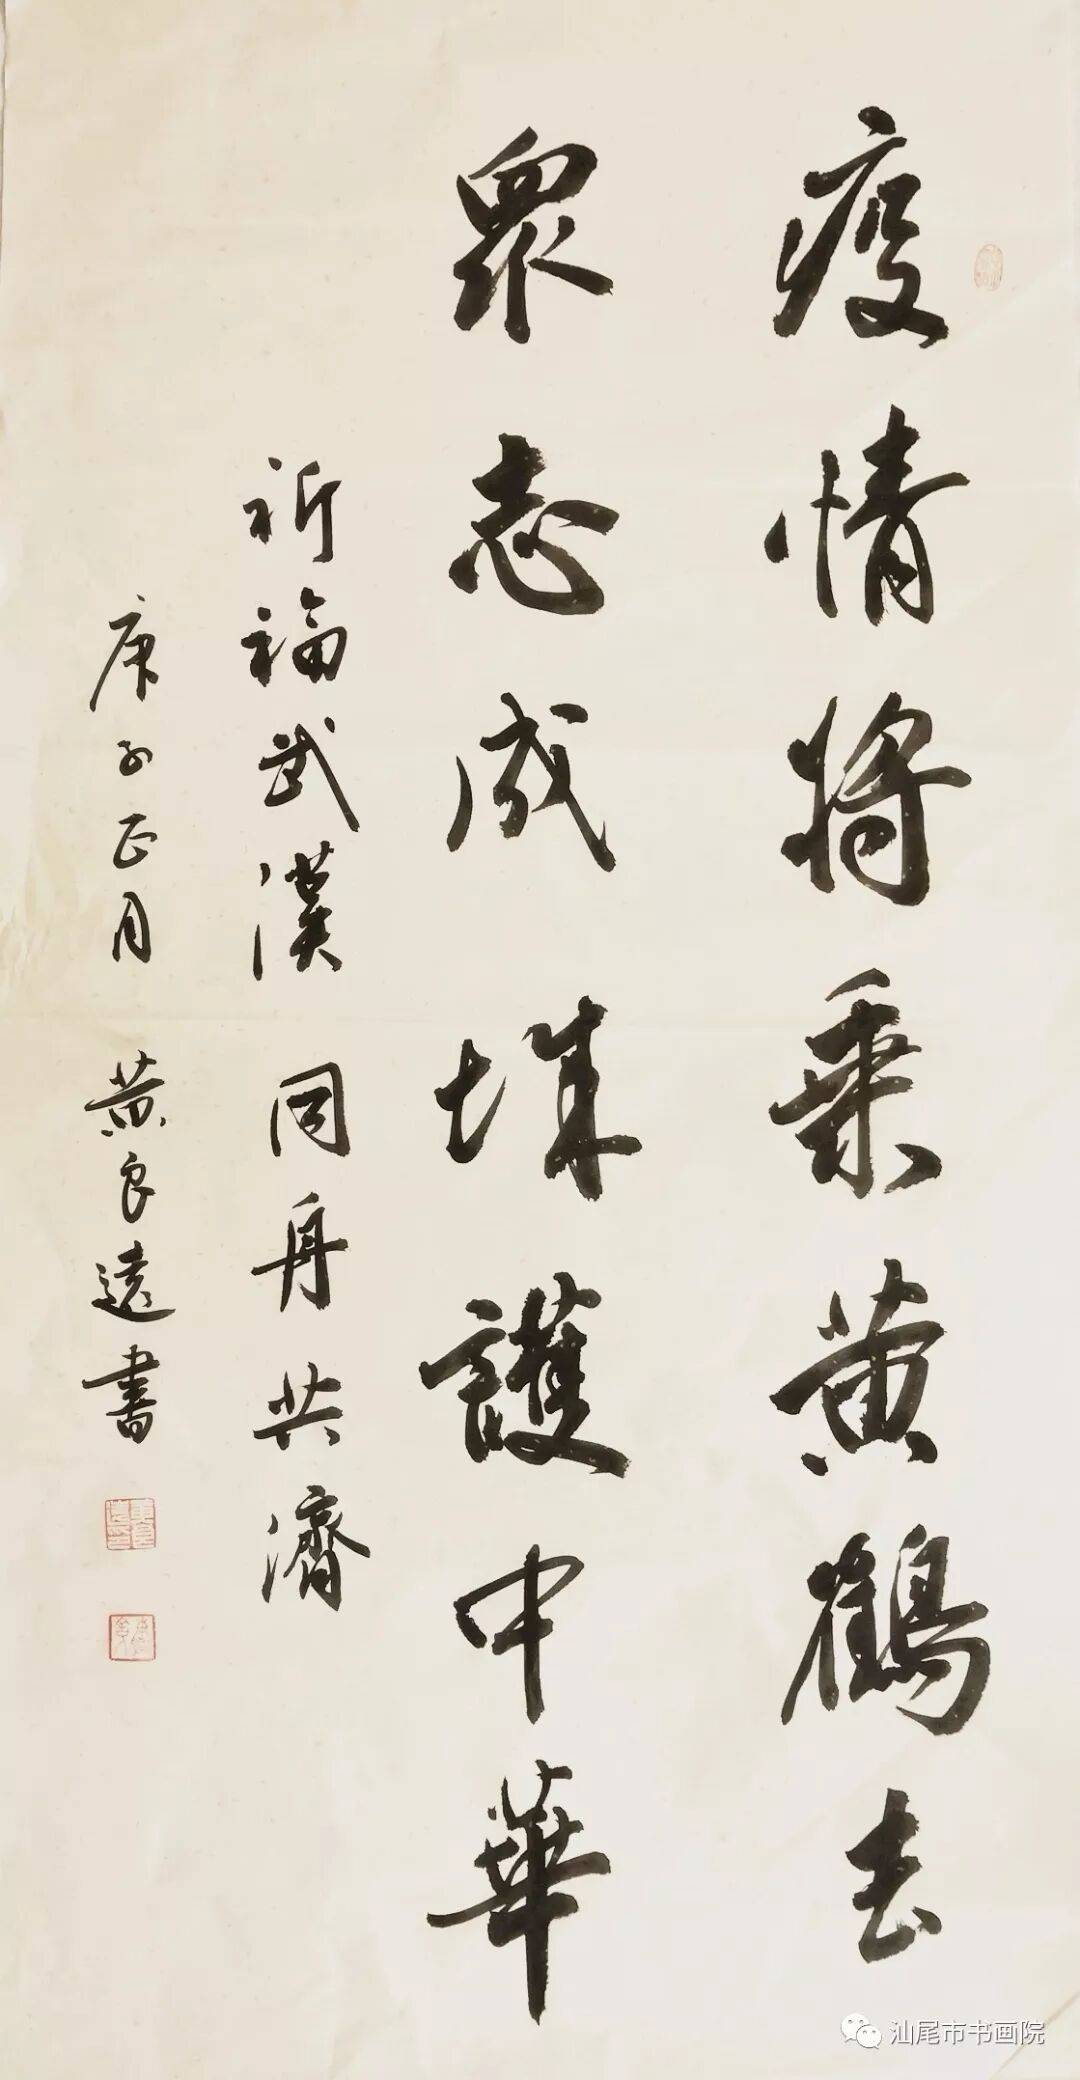 疫情将乘黄鶴去
眾志成城護中華
祈福武漢同舟共濟
庚子正月黄良遠書
汕尾市书画院